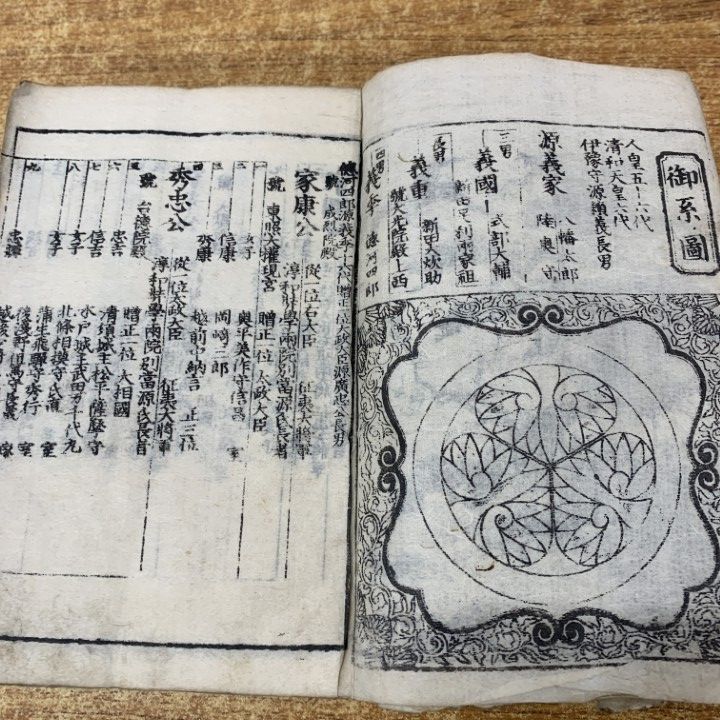 御系圖
人皇五十六代
清和天皇六代
伊豫守源頼義長男
源義家
八幡太郎
陸奥守
三男
義國
式部大輔
新田足利両家祖
長男
義重
新田大炊助
號大光院殿上西
四男
義季
徳河四郎
徳河四郎源義季十六代贈正一位太政大臣源廣忠公長男
號
成烈院殿
家康公
従一位右大臣
征夷大将軍
淳和奨學両院別當源氏長者
號
東照大権現宮
贈正一位
太政大臣
一
女子
奥平美作守信昌
室
二
信康
岡崎三郎
三
秀康
越前中納言
正三位
四
秀忠公
従一位太政大臣
征夷大将軍
淳和奨學両院別當源氏長者
號
台徳院殿
贈正一位
大相國
五
忠吉
清須城主松平薩摩守
六
信吉
水戸城主武田万千代丸
七
女子
北條相摸守氏直
室
八
女子
蒲生飛騨守秀行
室
九
忠輝